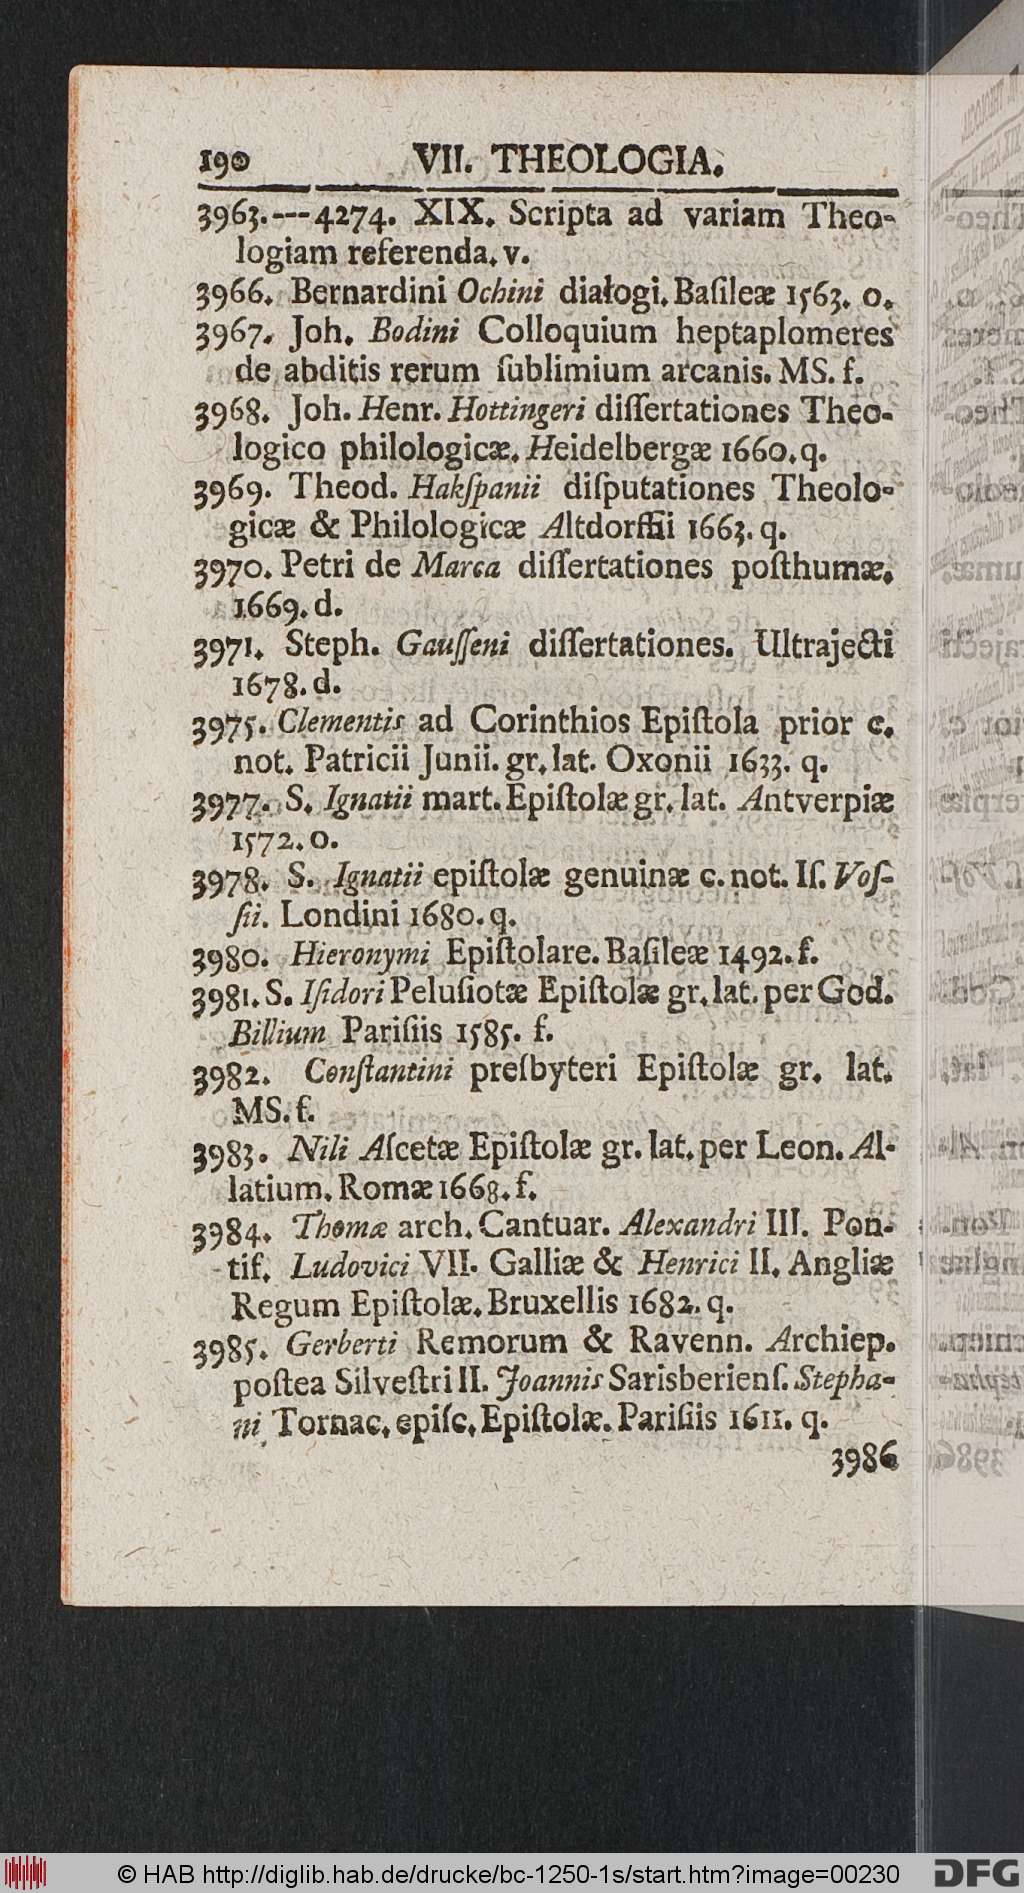 190 VII. THEOLOGIA.
3963.---4274. XIX. Scripta ad variam Theo-
logiam referenda. v.
3966. Bernardini Ochini dialogi. Baſileæ 1563. o.
3967. Joh. Bodini Colloquium heptaplomeres
de abditis rerum ſublimium arcanis. MS. f.
3968. Joh. Henr. Hottingeri diſſertationes Theo-
logico philologicæ. Heidelbergæ 1660. q.
3969. Theod. Hakſpanii diſputationes Theolo-
gicæ & Philologicæ Altdorffii 1663. q.
3970. Petri de Marca diſſertationes poſthumæ.
1669. d.
3971. Steph. Gauſſeni diſſertationes. Ultrajecti
1678. d.
3975. Clementis ad Corinthios Epiſtola prior c.
not. Patricii Junii. gr. lat. Oxonii 1633. q.
3977. S. Ignatii mart. Epiſtolæ gr. lat. Antverpiæ
1572. o.
3978. S. Ignatii epiſtolæ genuinæ c. not. Iſ. Voſ-
ſii. Londini 1680. q.
3980. Hieronymi Epiſtolare. Baſileæ 1492. f.
3981. S. Iſidori Peluſiotæ Epiſtolæ gr. lat. per God.
Billium Pariſiis 1585. f.
3982. Conſtantini presbyteri Epiſtolæ gr. lat.
MS. f.
3983. Nili Aſcetæ Epiſtolæ gr. lat. per Leon. Al-
latium. Romæ 1668. f.
3984. Thomæ arch. Cantuar. Alexandri III. Pon-
tif. Ludovici VII. Galliæ & Henrici II. Angliæ
Regum Epiſtolæ. Bruxellis 1682. q.
3985. Gerberti Remorum & Ravenn. Archiep.
poſtea Silveſtri II. Joannis Sarisberienſ. Stepha-
ni Tornac. epiſc. Epiſtolæ. Pariſiis 1611. q.
3986
© HAB http://diglib.hab.de/drucke/bc-1250-1s/start.htm?image=00230 DFG